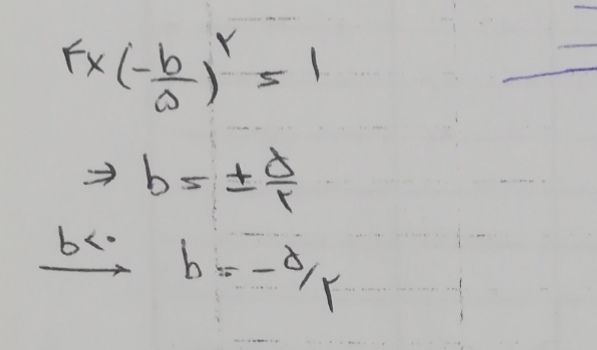 ۴×(-b/۵)^۲ = ۱
⇒ b = ± ۵/۲
b<۰ → b = -۵/۲